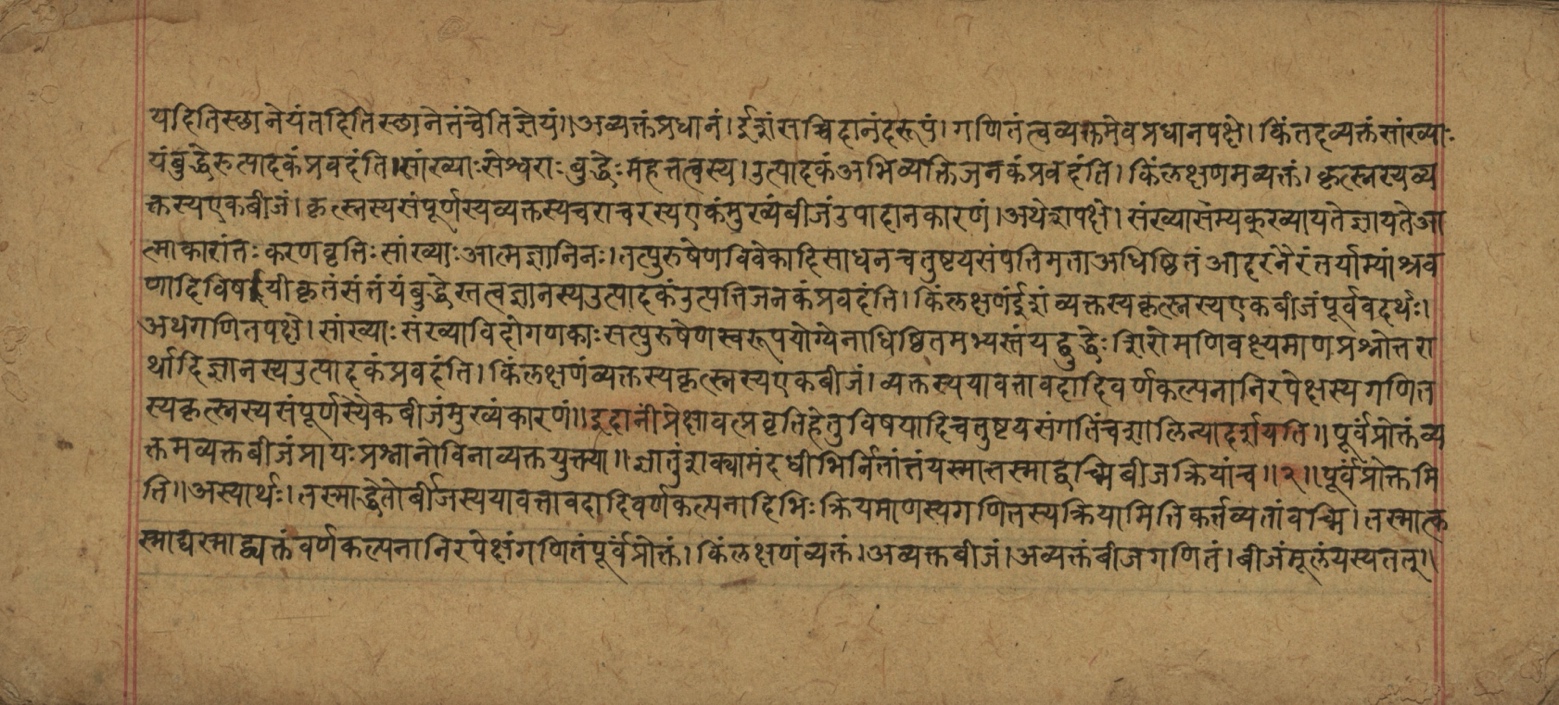 यदितिस्छानेयंतदितिस्छानेत्तंच्चेतिज्ञेयं॥अव्यक्तंप्रधानं।ईशंसच्चिदानंदरूपं।गणितंत्वव्यक्तमेवप्रधानपक्षे।किंतदव्यक्तंसांख्याः
यंबुद्धेरुत्पादकंप्रवदंति।सांख्याःसेश्वराःबुद्धेःमहत्तत्वस्य।उत्पादकंअभिव्यक्तिजनकंप्रवदंति।किंलक्षणमव्यक्तं।कृत्स्नस्यव्य
क्तस्यएकबीजं।कृत्स्नस्यसंपूर्णस्यव्यक्तस्यचराचरस्यएकंमुख्यंबीजंउपादानकारणं।अथेशपक्षे।संख्यासंम्यक्ख्यायतेज्ञायतेआ
त्माकारांतःकरणवृत्तिःसांख्याःआत्मज्ञानिनः।तत्पुरुषेणविवेकादिसाधनचतुष्टयसंपतिमताअधिष्ठितंआदरनैरंतर्याम्यांश्रव
णादिविषयीकृतंसंतंयंबुद्धेस्तत्वज्ञानस्यउत्पादकंउत्पत्तिजनकंप्रवदंति।किंलक्षणंईशंव्यक्तस्यकृत्स्नस्यएकबीजंपूर्ववदर्थः।
अथगणितपक्षे।सांख्याःसंख्याविदोगणकाःसत्पुरुषेणस्वरूपयोग्येनाधिष्ठितमभ्यस्तंयद्बुद्धेःशिरोमणिवक्ष्यमाणप्रश्नोत्तरा
र्थादिज्ञानस्यउत्पादकंप्रवदंति।किंलक्षणंव्यक्तस्यकृत्स्नस्यएकबीजं।व्यक्तस्ययावत्तावदादिवर्णकल्पनानिरपेक्षस्यगणित
स्यकृत्स्नस्यसंपूर्णस्यैकबीजंमुख्यंकारणं॥इदानींप्रेक्षावत्प्रवृत्तिहेतुविषयादिचतुष्टयसंगतिंचशालिन्यादर्शयति॥पूर्वंप्रोक्तंव्य
क्तमव्यक्तबीजंप्रायःप्रश्नानोविनाव्यक्तयुक्त्या॥ज्ञातुंशक्यामंदधीभिर्नितांत्तंयस्मात्तस्माद्वच्मिबीजक्रियांच॥२॥पूर्वंप्रोक्तमि
ति॥अस्यार्थः।तस्माद्धेतोर्बीजस्ययावत्तावदादिवर्णकल्पनादिभिःक्रियमाणस्यगणितस्यक्रियामितिकर्त्तव्यतांवच्मि।तस्मात्क
स्माद्यस्माद्व्यक्तंवर्णकल्पनानिरपेक्षंगणितंपूर्वंप्रोक्तं।किंलक्षणंव्यक्तं।अव्यक्तबीजं।अव्यक्तंबीजगणितं।बीजंमूलंयस्यतत्॥